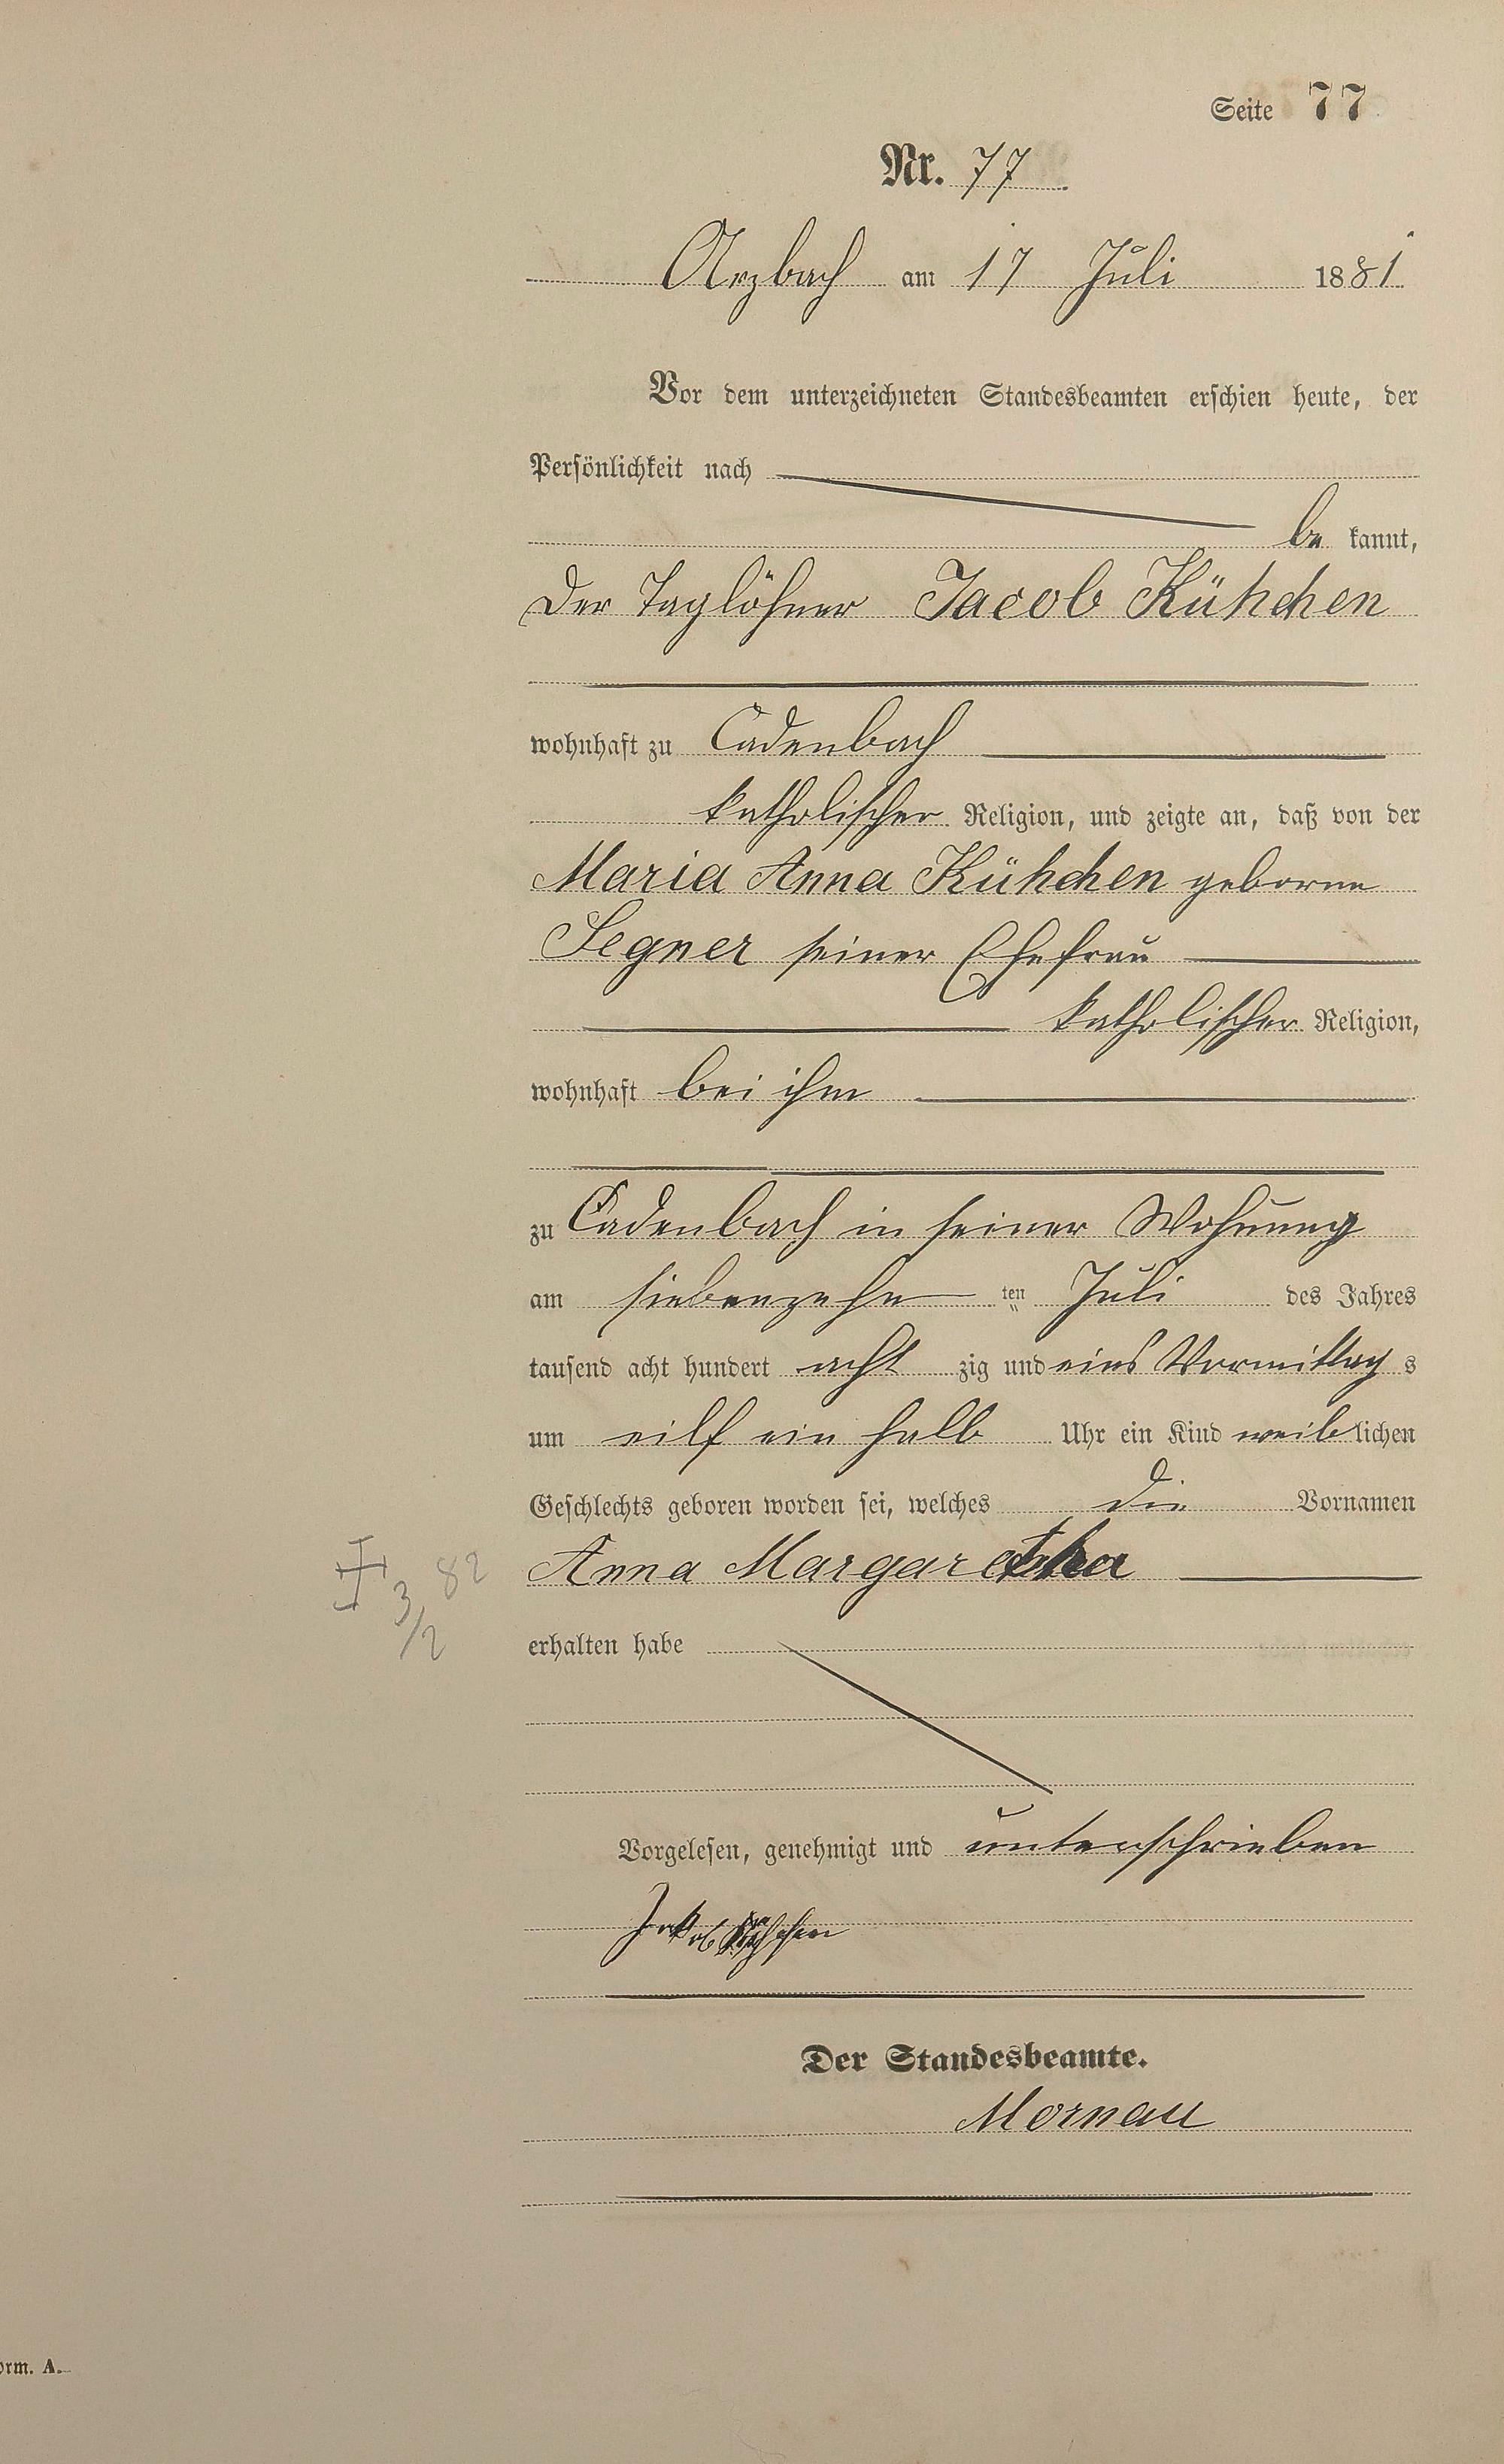 Seite 77
Nr. 77
Arzbach am 17 Juli 1881
Vor dem unterzeichneten Standesbeamten erschien heute, der
Persönlichkeit nach
be kannt,
der Taglöhner Jacob Kühchen
wohnhaft zu Cadenbach
katholischer Religion, und zeigte an, daß von der
Maria Anna Kühchen geborne
Segner seiner Ehefrau
katholischer Religion,
wohnhaft bei ihm
zu Cadenbach in seiner Wohnung
am siebenzehn ten Juli des Jahres
tausend acht hundert acht zig und eins Vormittag s
um eilf ein halb Uhr ein Kind weiblichen
Geschlechts geboren worden sei, welches die Vornamen
Anna Margaretha
3/2 82
erhalten habe
Vorgelesen, genehmigt und unterschrieben
Jakob Kühchen
Der Standesbeamte.
Mornau
orm. A.